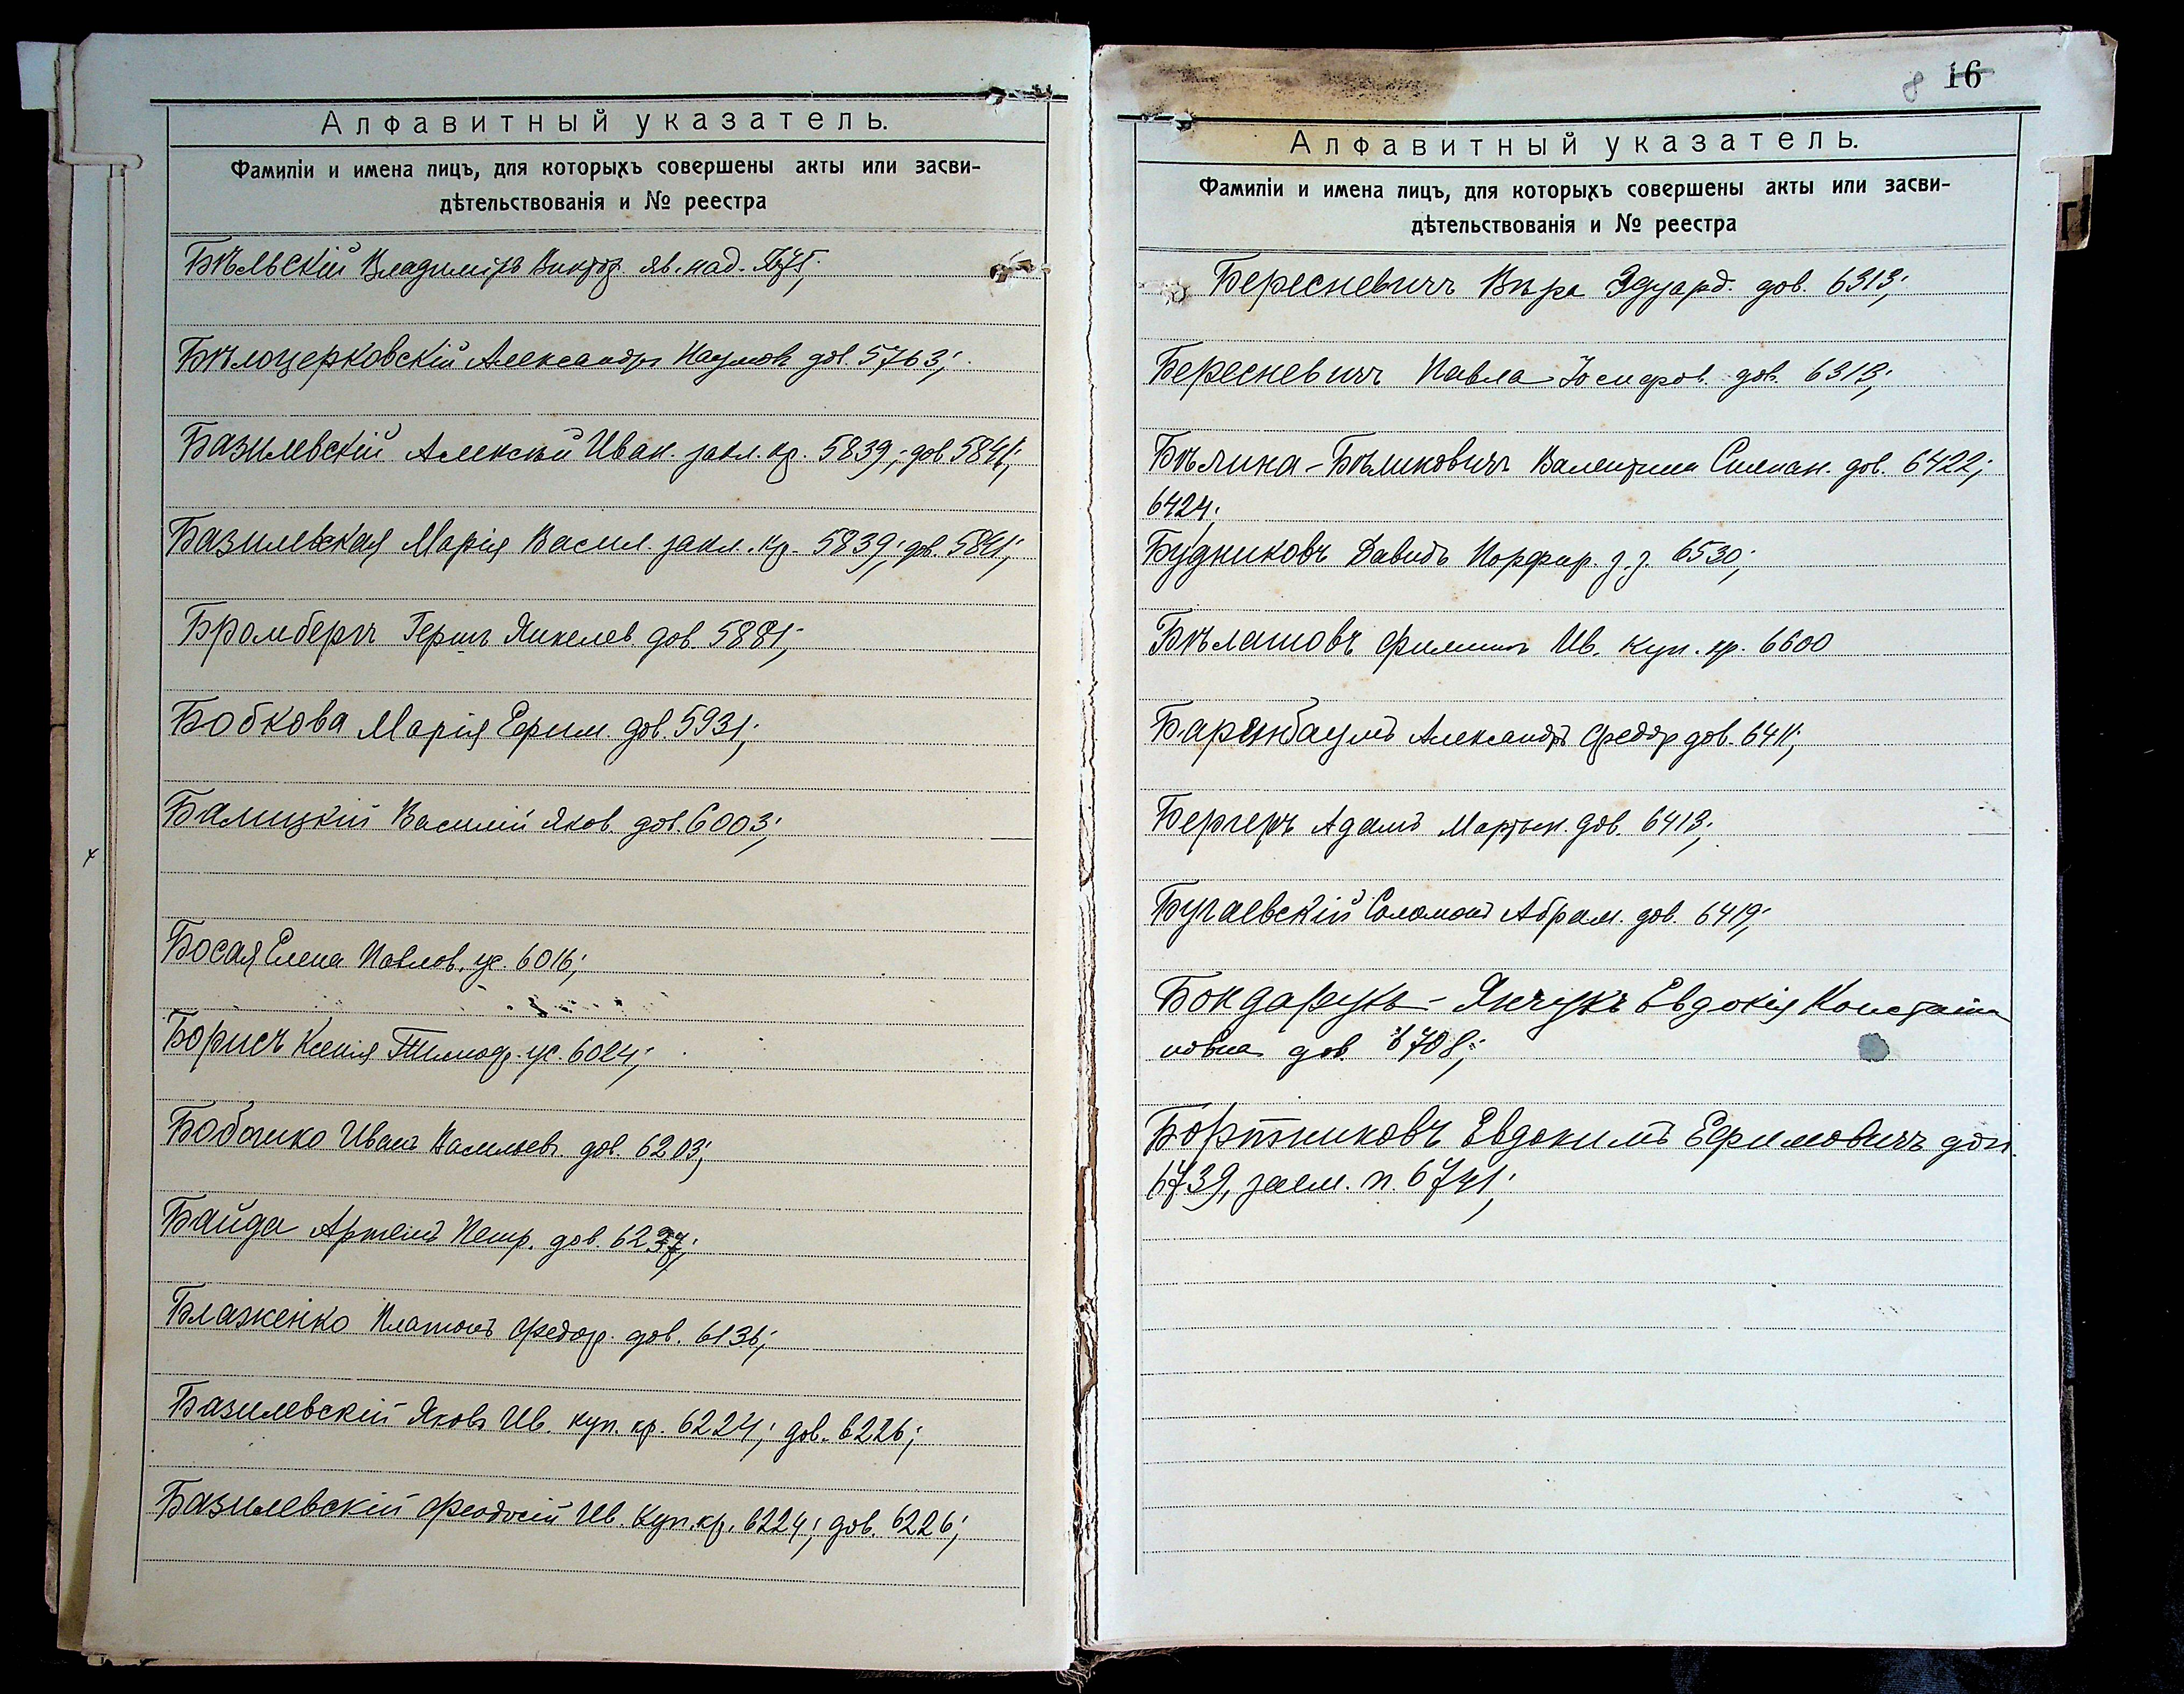 Алфавитный указатель.
Фамиліи и имена лицъ, для которыхъ совершены акты или засви-
дѣтельствованія и № реестра
Бѣльскій Владиміръ Виктор. яв. над.
Бѣлоцерковскій Александръ Наумов. дов. 5763;
Базилевскій Алексѣй Иван. закл. кр. 5839; дов. 5841;
Базилевская Марія Васил. закл. кр. 5839; дов. 5841;
Бромбергъ Гершъ Янкелев. дов. 5881;
Бобкова Марія Ефим. дов. 5931;
Балицкій Василій Яков. дов. 6003;
Босая Елена Павлов. ус. 6016;
Борисъ Ксенія Тимоф. ус. 6024;
Иванъ Васильев. дов. 6203;
Байда Артемъ Петр. дов. 6237;
Блаженко Платонъ Федор. дов. 6136;
Базилевскій Яковъ Ив. куп. кр. 6224; дов. 6226;
Базилевскій Феодосій Ив. куп. кр. 6224; дов. 6226;
8 16
Алфавитный указатель.
Фамиліи и имена лицъ, для которыхъ совершены акты или засви-
дѣтельствованія и № реестра
Бересневичъ Вѣра Эдуард. дов. 6313;
Бересневичъ Павла Іосифов. дов. 6313;
Бѣлина-Бѣликовичъ Валентина Степан. дов. 6422;
6424;
Будниковъ Давидъ Порфир. з. з. 6530;
Бѣлашовъ Филиппъ Ив. куп. кр. 6600
Баренбаумъ Александръ Федор. дов. 6411;
Бергеръ Адамъ Мартын. дов. 6413;
Бугаевскій Соломонъ Абрам. дов. 6419;
Бондарукъ-Янчукъ Евдокія Константи
новна дов. 6708;
Бортниковъ Евдокимъ Ефимовичъ
6739, заем. п. 6741;